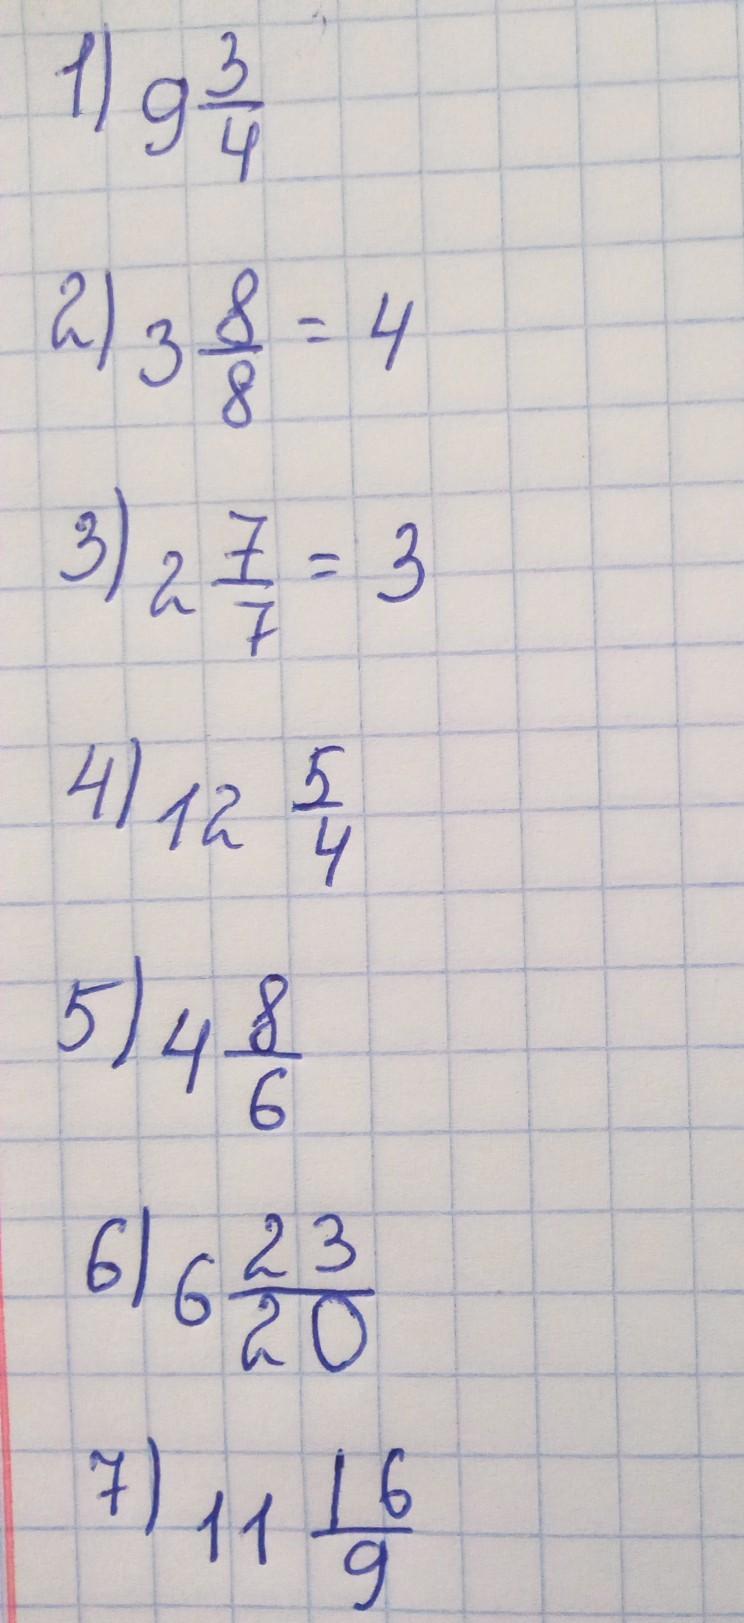 1) 9 3/4
2) 3 8/8 = 4
3) 2 7/7 = 3
4) 12 5/4
5) 4 8/6
6) 6 23/20
7) 11 16/9